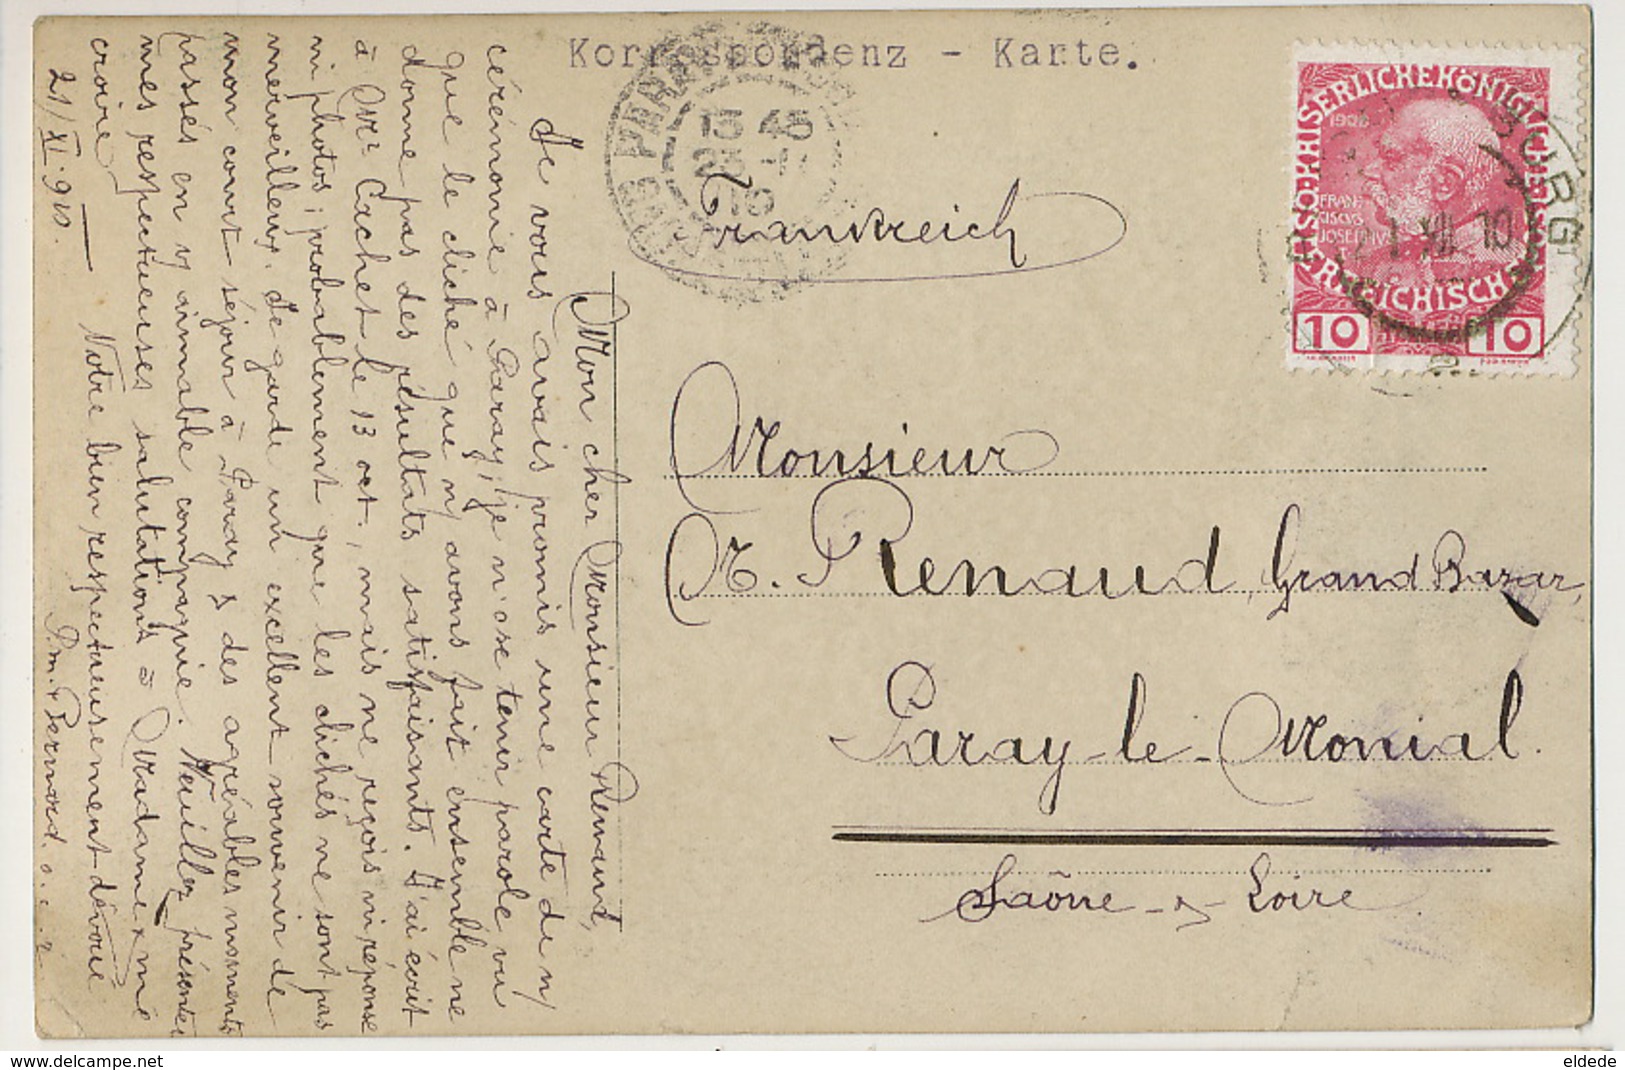 Korrespondenz - Karte.
Frankreich
Monsieur
M. Renaud, Grand Bazar,
Paray-le-Monial.
Saône-&-Loire
Mon cher Monsieur Renaud,
Je vous avais promis une carte de n/
cérémonie à Paray, je n'ose tenir parole vu
que le cliché que n/ avons fait ensemble ne
donne pas des résultats satisfaisants. J'ai écrit
à Mr Cachet le 13 oct, mais ne reçois ni réponse
ni photos; probablement que les clichés ne sont pas
merveilleux. Je garde un excellent souvenir de
mon court séjour à Paray & des agréables moments
passés en v/ aimable compagnie. Veuillez présenter
mes respectueuses salutations à Madame & me
croire
Votre bien respectueusement dévoué
21/XI. 910.
Bernard. o. c. r.
KAISERLICHE KÖNIGLICHE
ÖSTERREICHISCHE
1908
FRAN-
CISCVS
JOSEPHVS
10 10
BURG
15 45
10